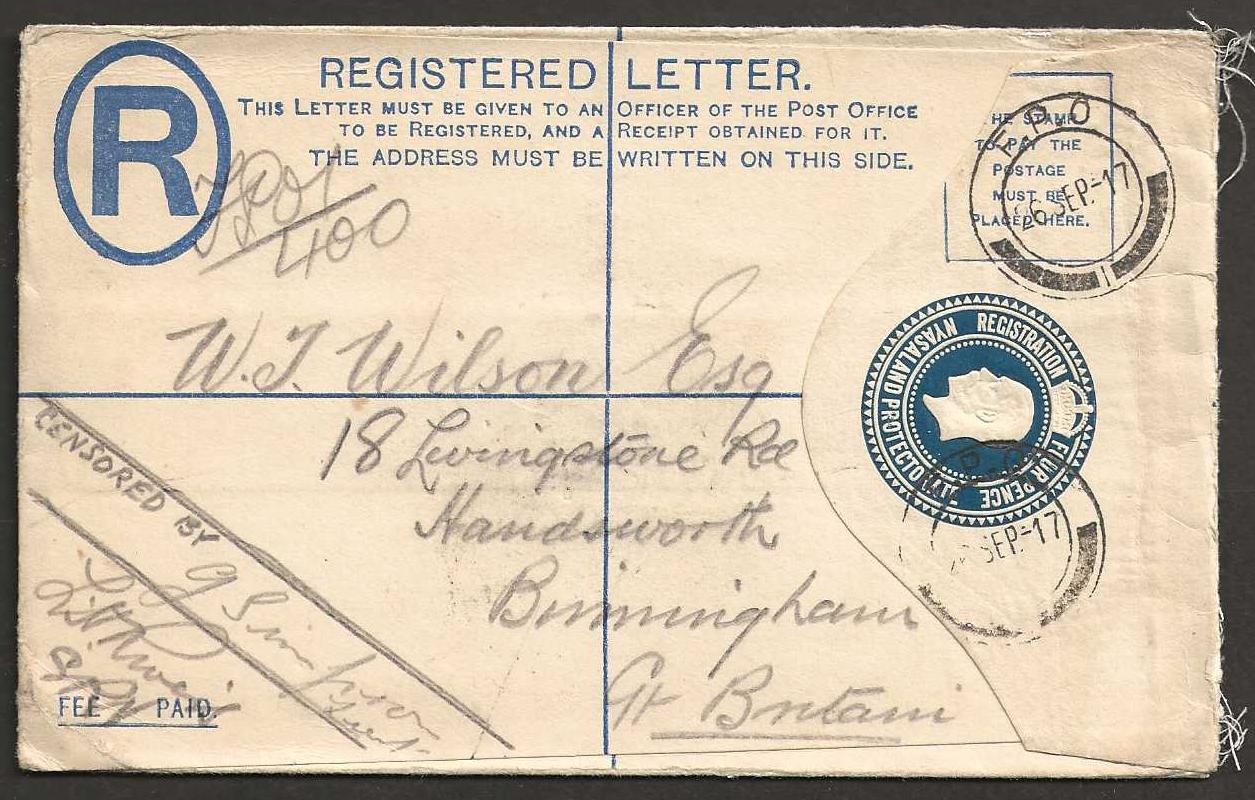 R
REGISTERED LETTER.
THIS LETTER MUST BE GIVEN TO AN OFFICER OF THE POST OFFICE
TO BE REGISTERED, AND A RECEIPT OBTAINED FOR IT.
THE ADDRESS MUST BE WRITTEN ON THIS SIDE.
HE STAMP
TO PAY THE
POSTAGE
MUST BE
PLACED HERE.
F.P.O
26 SEP.-17
400
W. J. Wilson Esq
18 Livingstone Rd
Handsworth
Birmingham
Gt Britain
NYASALAND PROTECTORATE
REGISTRATION FOUR PENCE
P.O
SEP.-17
CENSORED BY G Simpson
FEE PAID.